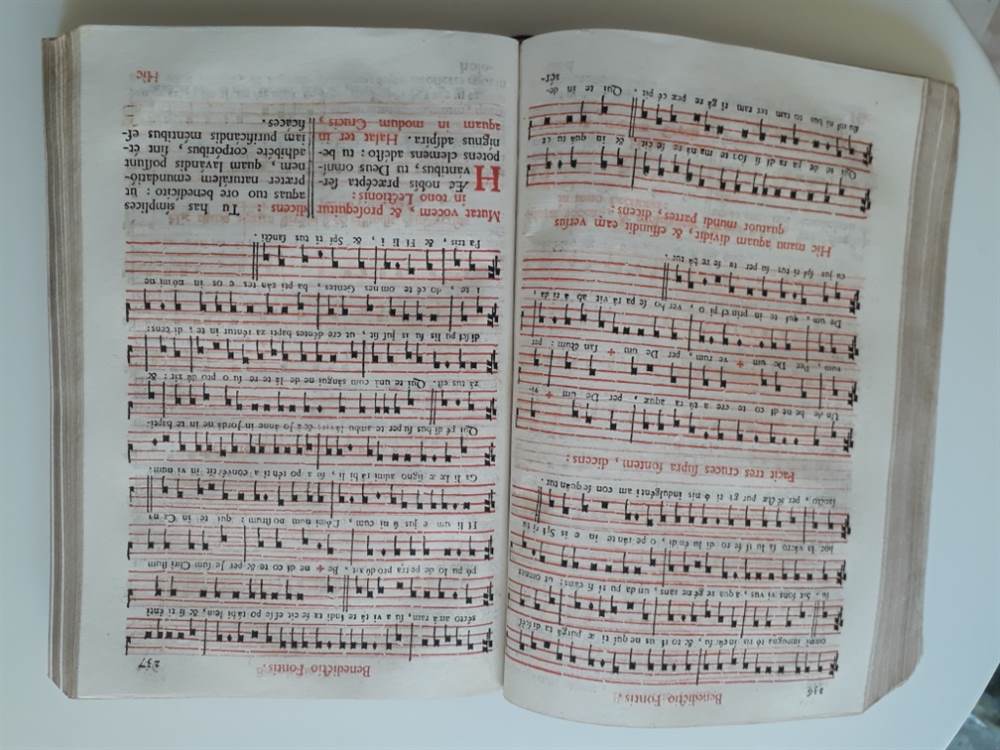 236
Benedictio Fontis.
omni impugna tió nis incúr su, & to tí us ne quí ti æ purgá ta discéſſ
ſu. Sit fons vivus, aqua re gé ne rans, un da pu rí fi cans: ut omnes
hoc la vácro ſa lu tí fe ro di lu én di, o pe ránte in e is Spí ri tu
ſancto, per féctæ pur ga ti ó nis indulgénti am con ſe quántur.
Facit tres cruces ſupra fontem, dicens:
Un de be ne dí co te cre a tú ra aquæ, per De um + vi-
vum, Per De um + ve rum, per De um + ſan ctum: per
De um, qui te in princí pi o, ver bo ſe pa rá vit ab á ri da,
cu jus ſpí ri tus ſu per te fe re bá tur.
Hic manu aquam dividit, & effundit eam verſus
quatuor mundi partes, dicens:
Qui te de pa ra dí ſi fonte ma ná re fe cit, & in quá tu or
flu mí ni bus to tam ter ram ri gá re præ cé pit. Qui te in de-
ſér-
Benedictio Fontis.
237
sérto amá ram, ſu a vi tá te índi ta fe cit eſſe po tá bi lem, & ſi ti énti
pó pu lo de petra pro dú xit. Be + ne dí co te & per Je ſum Chri ſtum
Fí li um e jus ú ni cum, Dómi num noſtrum: qui te in Ca na
Ga li lǽ æ ſigno admi rá bi li, ſu a po tén ti a convértit in vi num:
Qui pé di bus ſu per te ambu lá vit: & a Jo ánne in Jordá ne in te bapti-
zá tus eſt. Qui te uni cum sángui ne de lá te re ſu o pro dú xit: &
diſcí pu lis ſu is juſſit, ut cre déntes bapti za réntur in te, di cens:
I te, do cé te omnes Gentes, ba pti zán tes e os in nó mi ne
Pa tris, & Fí li i, & Spí ri tus ſancti.
Mutat vocem, & proſequitur
in tono Lectionis:
HÆc nobis præcépta ſer-
vántibus, tu Deus omní-
potens clemens adéſto: tu be-
nígnus aſpíra. Halat ter in
aquam in modum Crucis,
dicens: Tu has símplices
aquas tuo ore benedícito: ut
præter naturálem emundatió-
nem, quam lavándis poſſunt
adhibére corpóribus, ſint ét-
iam purificándis méntibus ef-
ficáces.
Hic